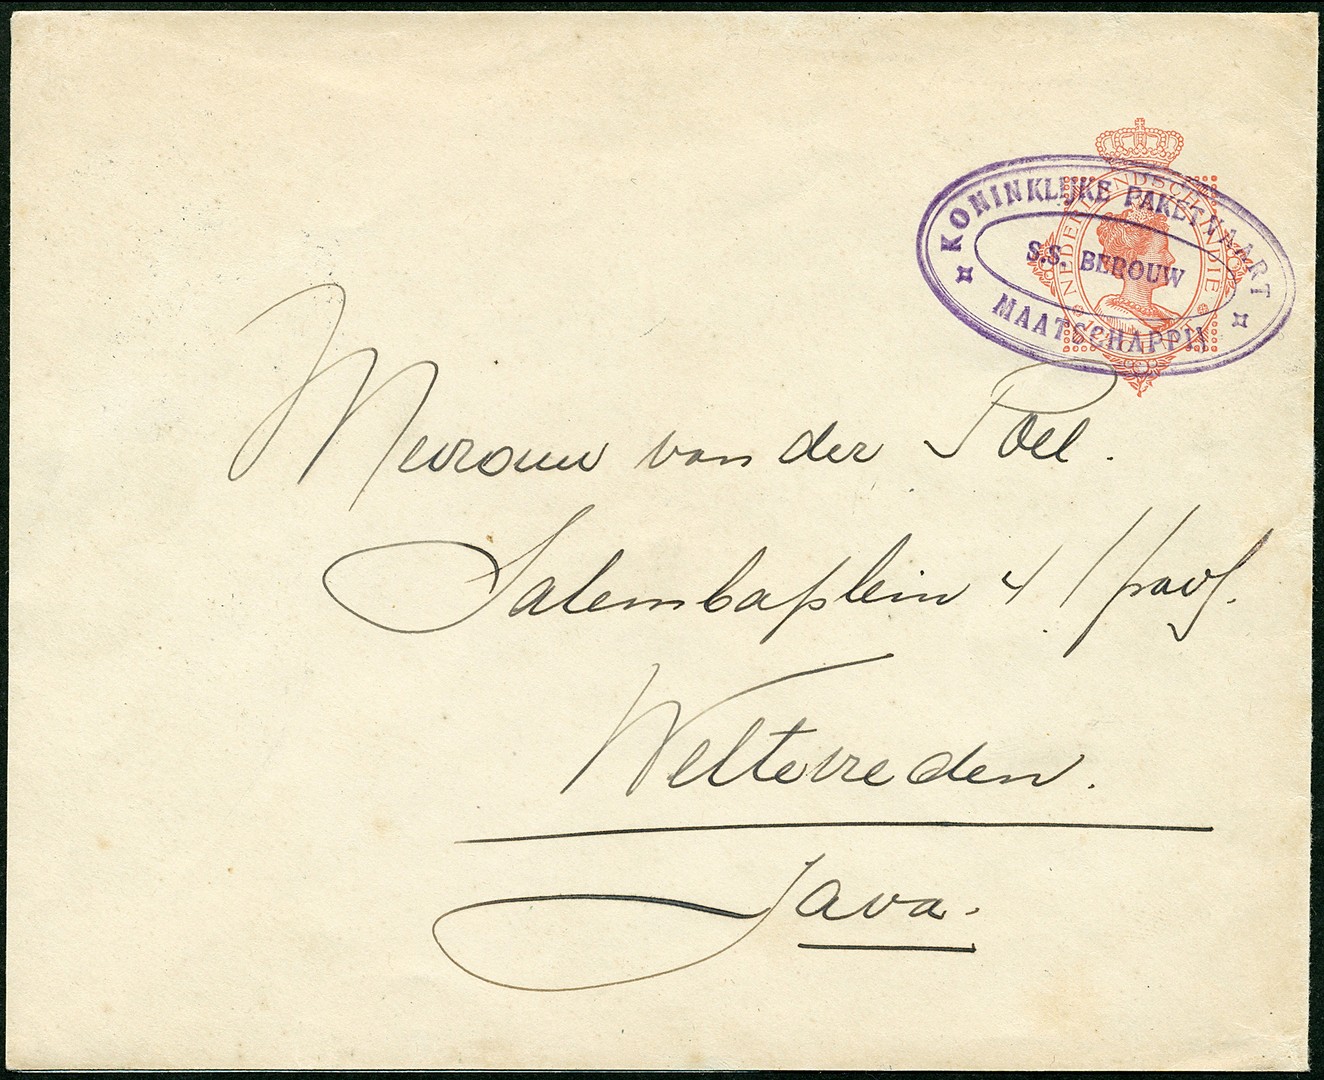 KONINKLIJKE PAKETVAART
S.S. BEROUW
MAATSCHAPPIJ
NEDERLANDSCH-INDIE
Mevrouw van der Poel.
Salembaplein 4
Weltevreden.
Java.